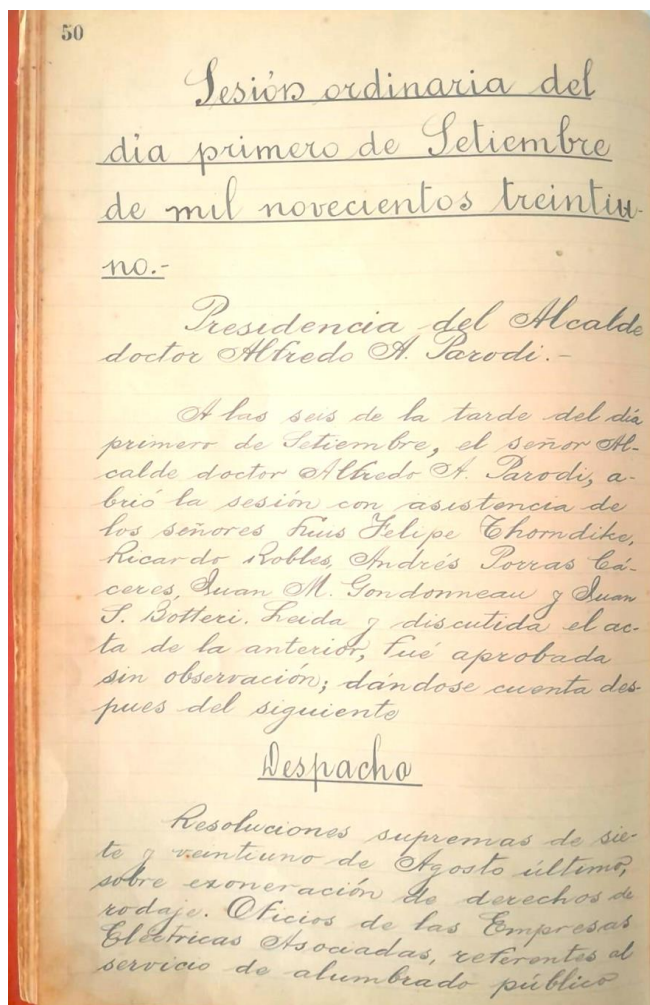 50
Sesión ordinaria del
día primero de Setiembre
de mil novecientos treintiu-
no.-
Presidencia del Alcalde
doctor Alfredo A. Parodi.-
A las seis de la tarde del día
primero de Setiembre, el señor Al-
calde doctor Alfredo A. Parodi, a-
brió la sesión con asistencia de
los señores Luis Felipe Thorndike,
Ricardo Robles, Andrés Porras Cá-
ceres, Juan M. Gondonneau y Juan
S. Botteri. Leida y discutida el ac-
ta de la anterior, fué aprobada
sin observación; dándose cuenta des-
pues del siguiente
Despacho
Resoluciones supremas de sie-
te y veintiuno de Agosto último,
sobre exoneración de derechos de
rodaje. Oficios de las Empresas
Eléctricas Asociadas, referentes al
servicio de alumbrado público